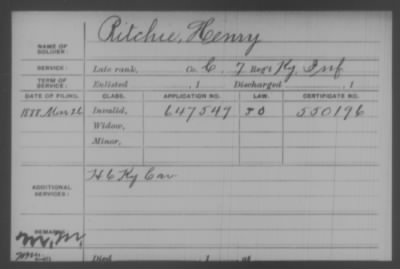 Ritchie, Henry
NAME OF SOLDIER:
SERVICE: Late rank, Co. C, 7 Reg't Ky. Inf
TERM OF SERVICE: Enlisted , 1 Discharged , 1
DATE OF FILING. CLASS. APPLICATION NO. LAW. CERTIFICATE NO.
1888 Mar 26 Invalid, 647547 550196
Widow,
Minor,
ADDITIONAL SERVICES: H 6 Ky Cav
REMARKS:
Died , 1 , at